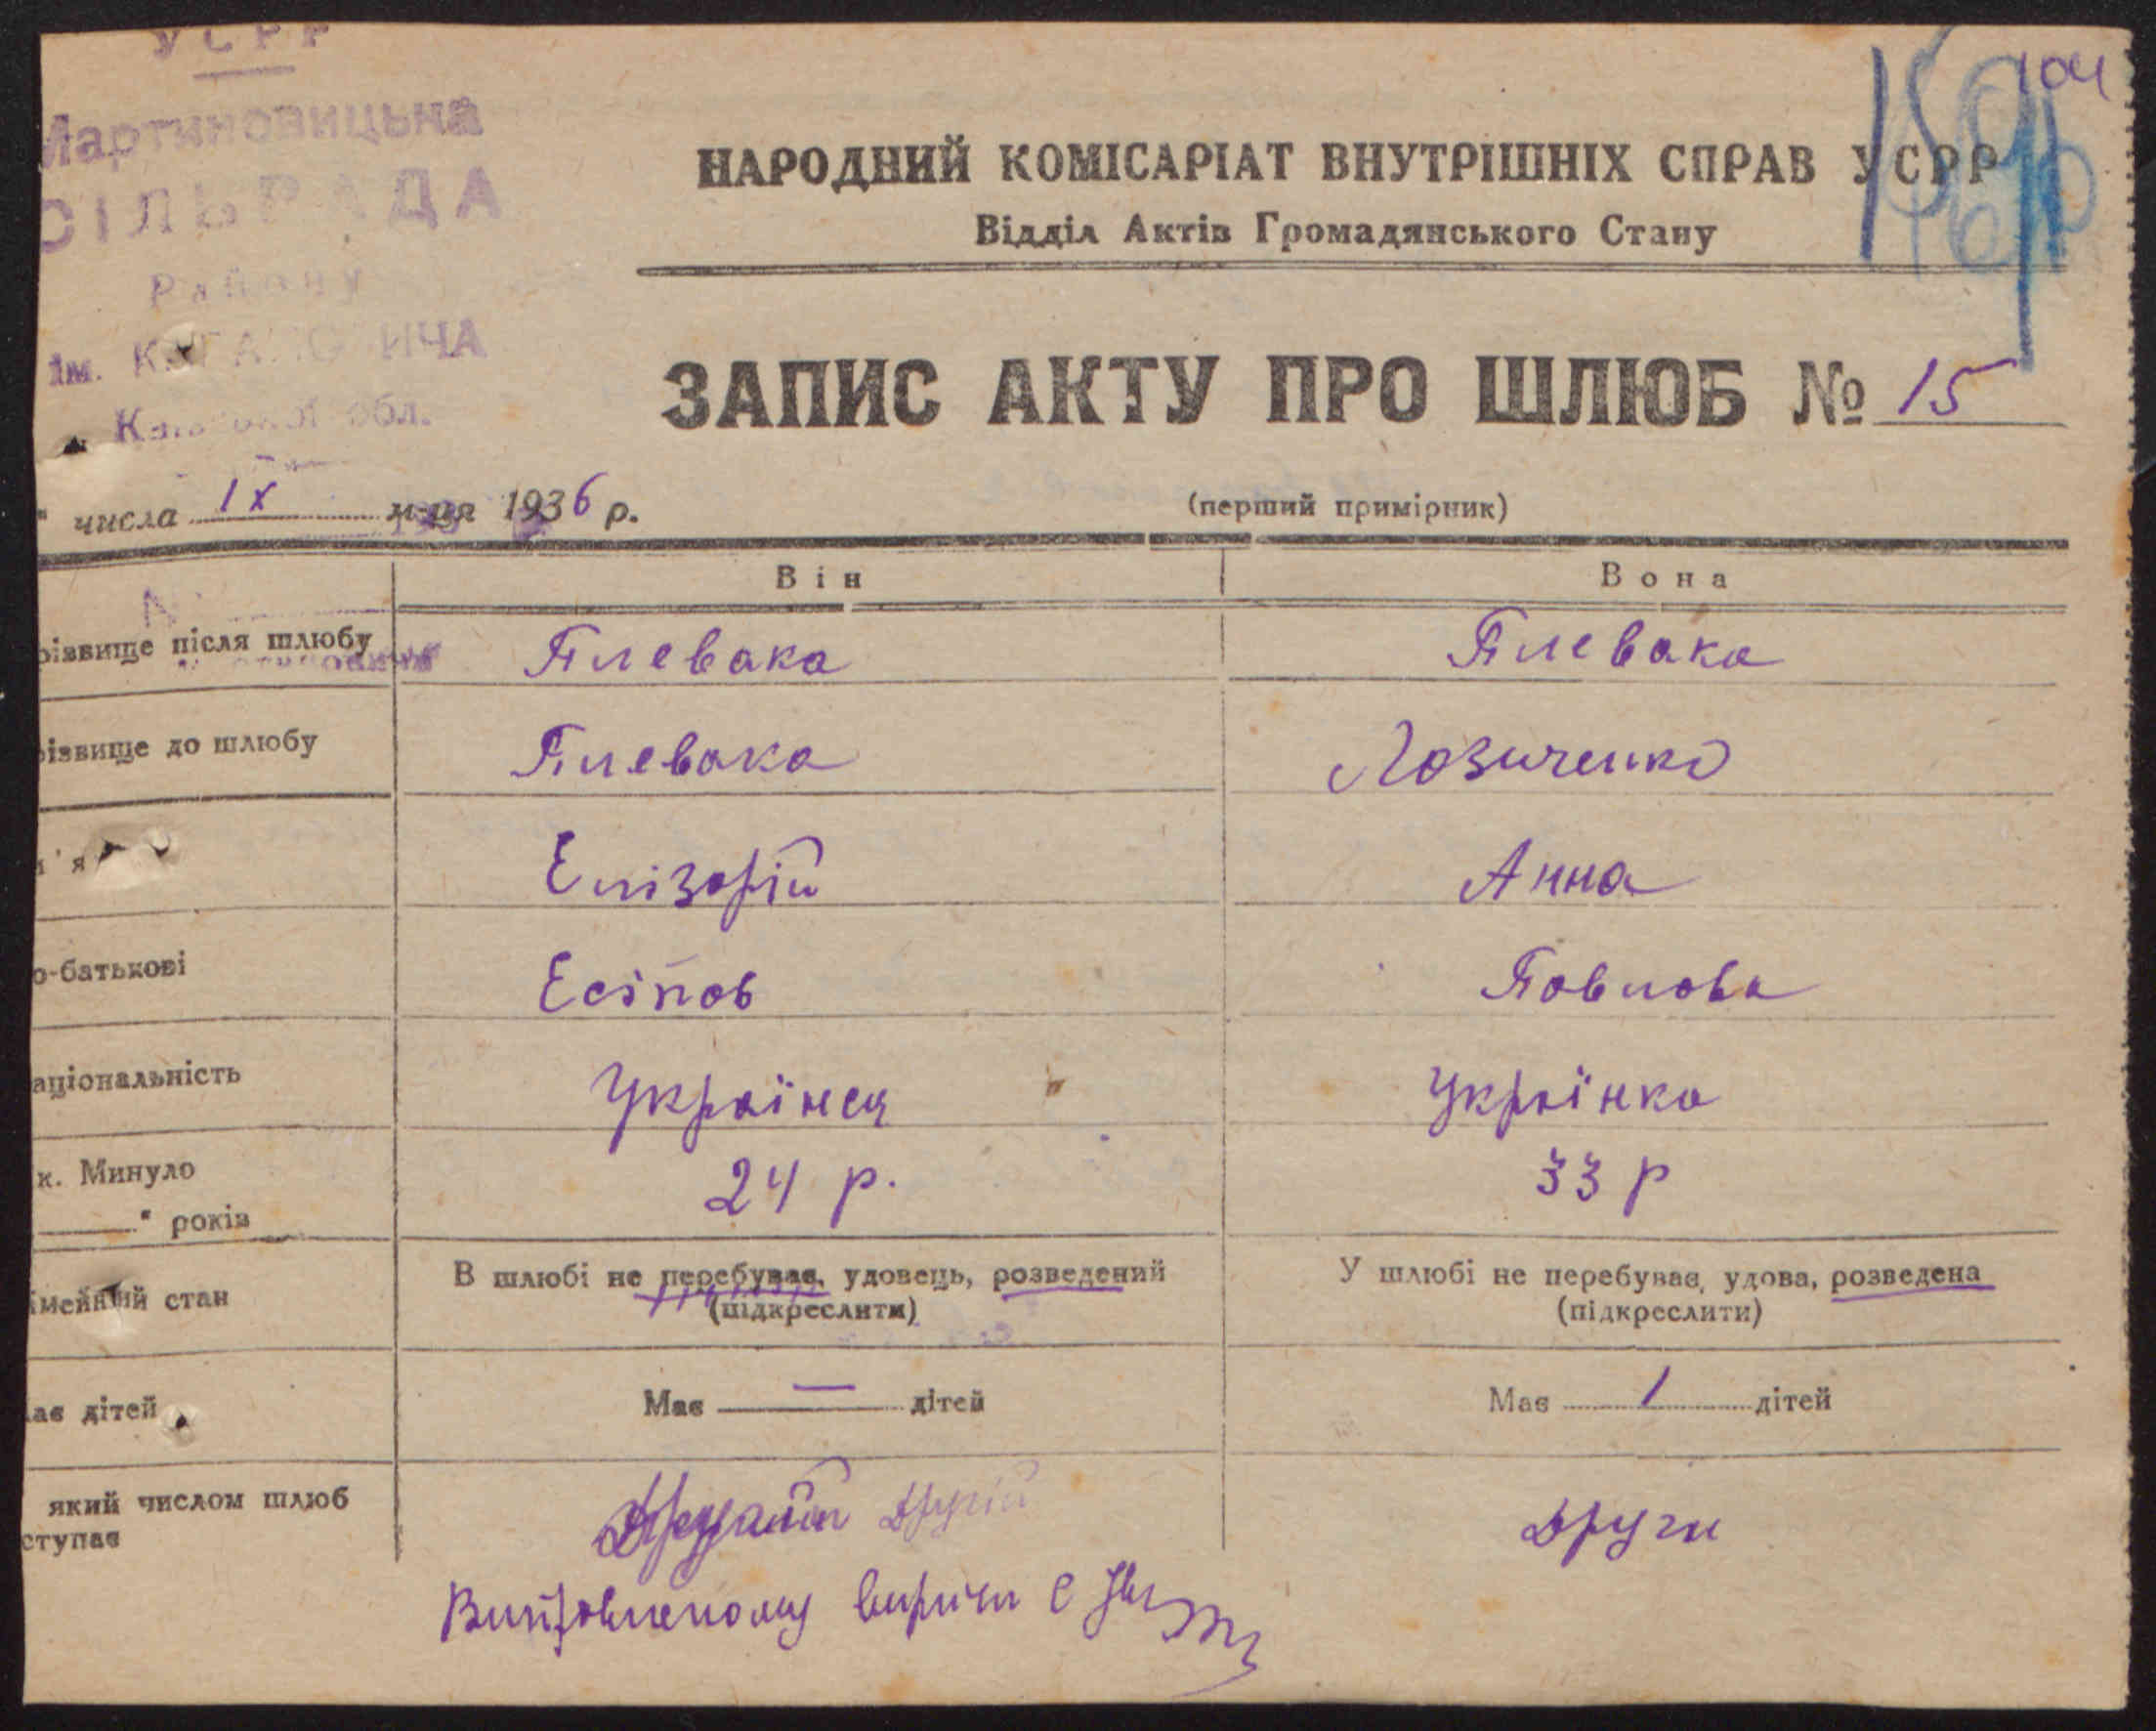 УСРР
Мартиновицька
СІЛЬРАДА
Району
ім. КАГАНОВИЧА
Київської обл.
104
НАРОДНИЙ КОМІСАРІАТ ВНУТРІШНІХ СПРАВ УСРР
Відділ Актів Громадянського Стану
ЗАПИС АКТУ ПРО ШЛЮБ № 15
" числа IX м-ця 1936 р.
(перший примірник)
Він Вона
різвище після шлюбу Плевака Плевака
різвище до шлюбу Плевака Лозиченко
м'я Елізарій Анна
о-батькові Есіпов Павлова
аціональність Українец Укрїнка
к. Минуло 24 р. 33 р
" років
імейний стан В шлюбі не перебуває, удовець, розведений У шлюбі не перебуває, удова, розведена
(підкреслити) (підкреслити)
ає дітей Має — дітей Має 1 дітей
який числом шлюб Другий Други
ступає
Виправленому вирити